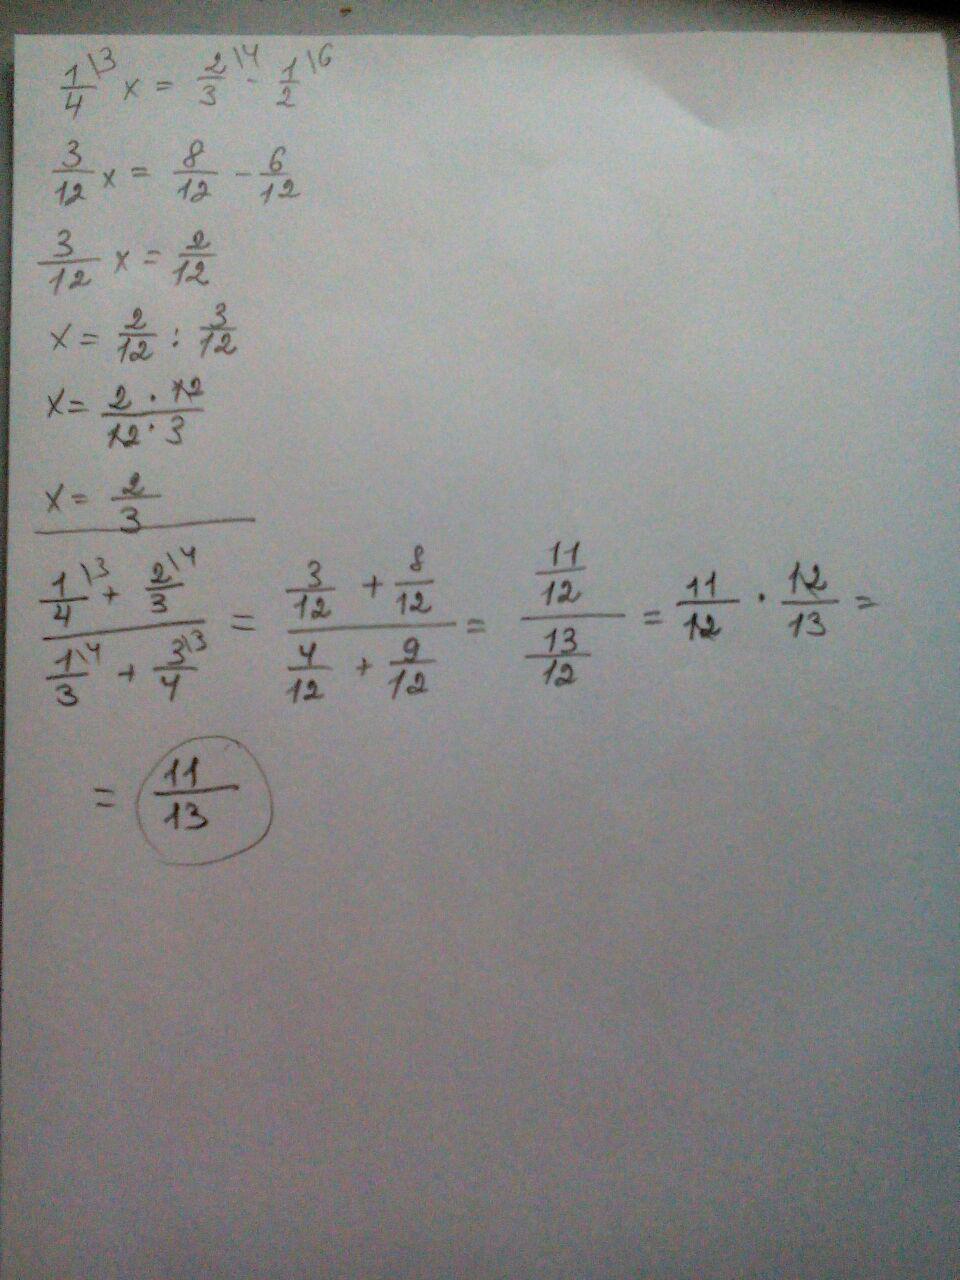 1/4 \3 x = 2/3 \4 - 1/2 \6
3/12 x = 8/12 - 6/12
3/12 x = 2/12
x = 2/12 : 3/12
x = (2 · 12)/(12 · 3)
x = 2/3
(1/4 \3 + 2/3 \4)/(1/3 \4 + 3/4 \3) = (3/12 + 8/12)/(4/12 + 9/12) = (11/12)/(13/12) = 11/12 · 12/13 =
= 11/13